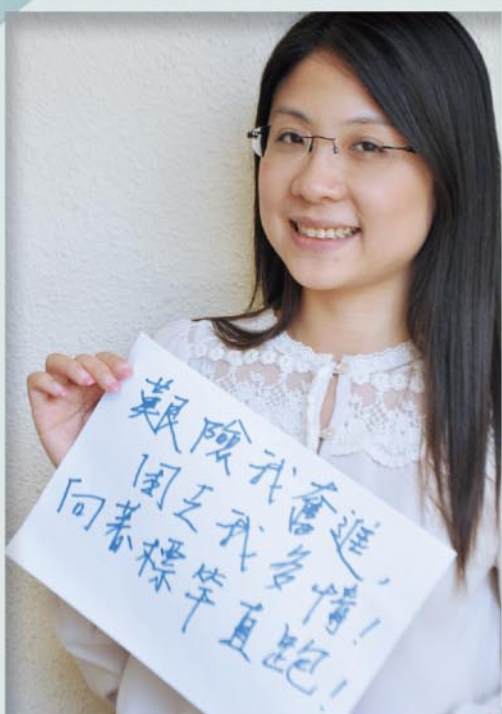 艱險我奮進,
困乏我多情!
向着標竿直跑!